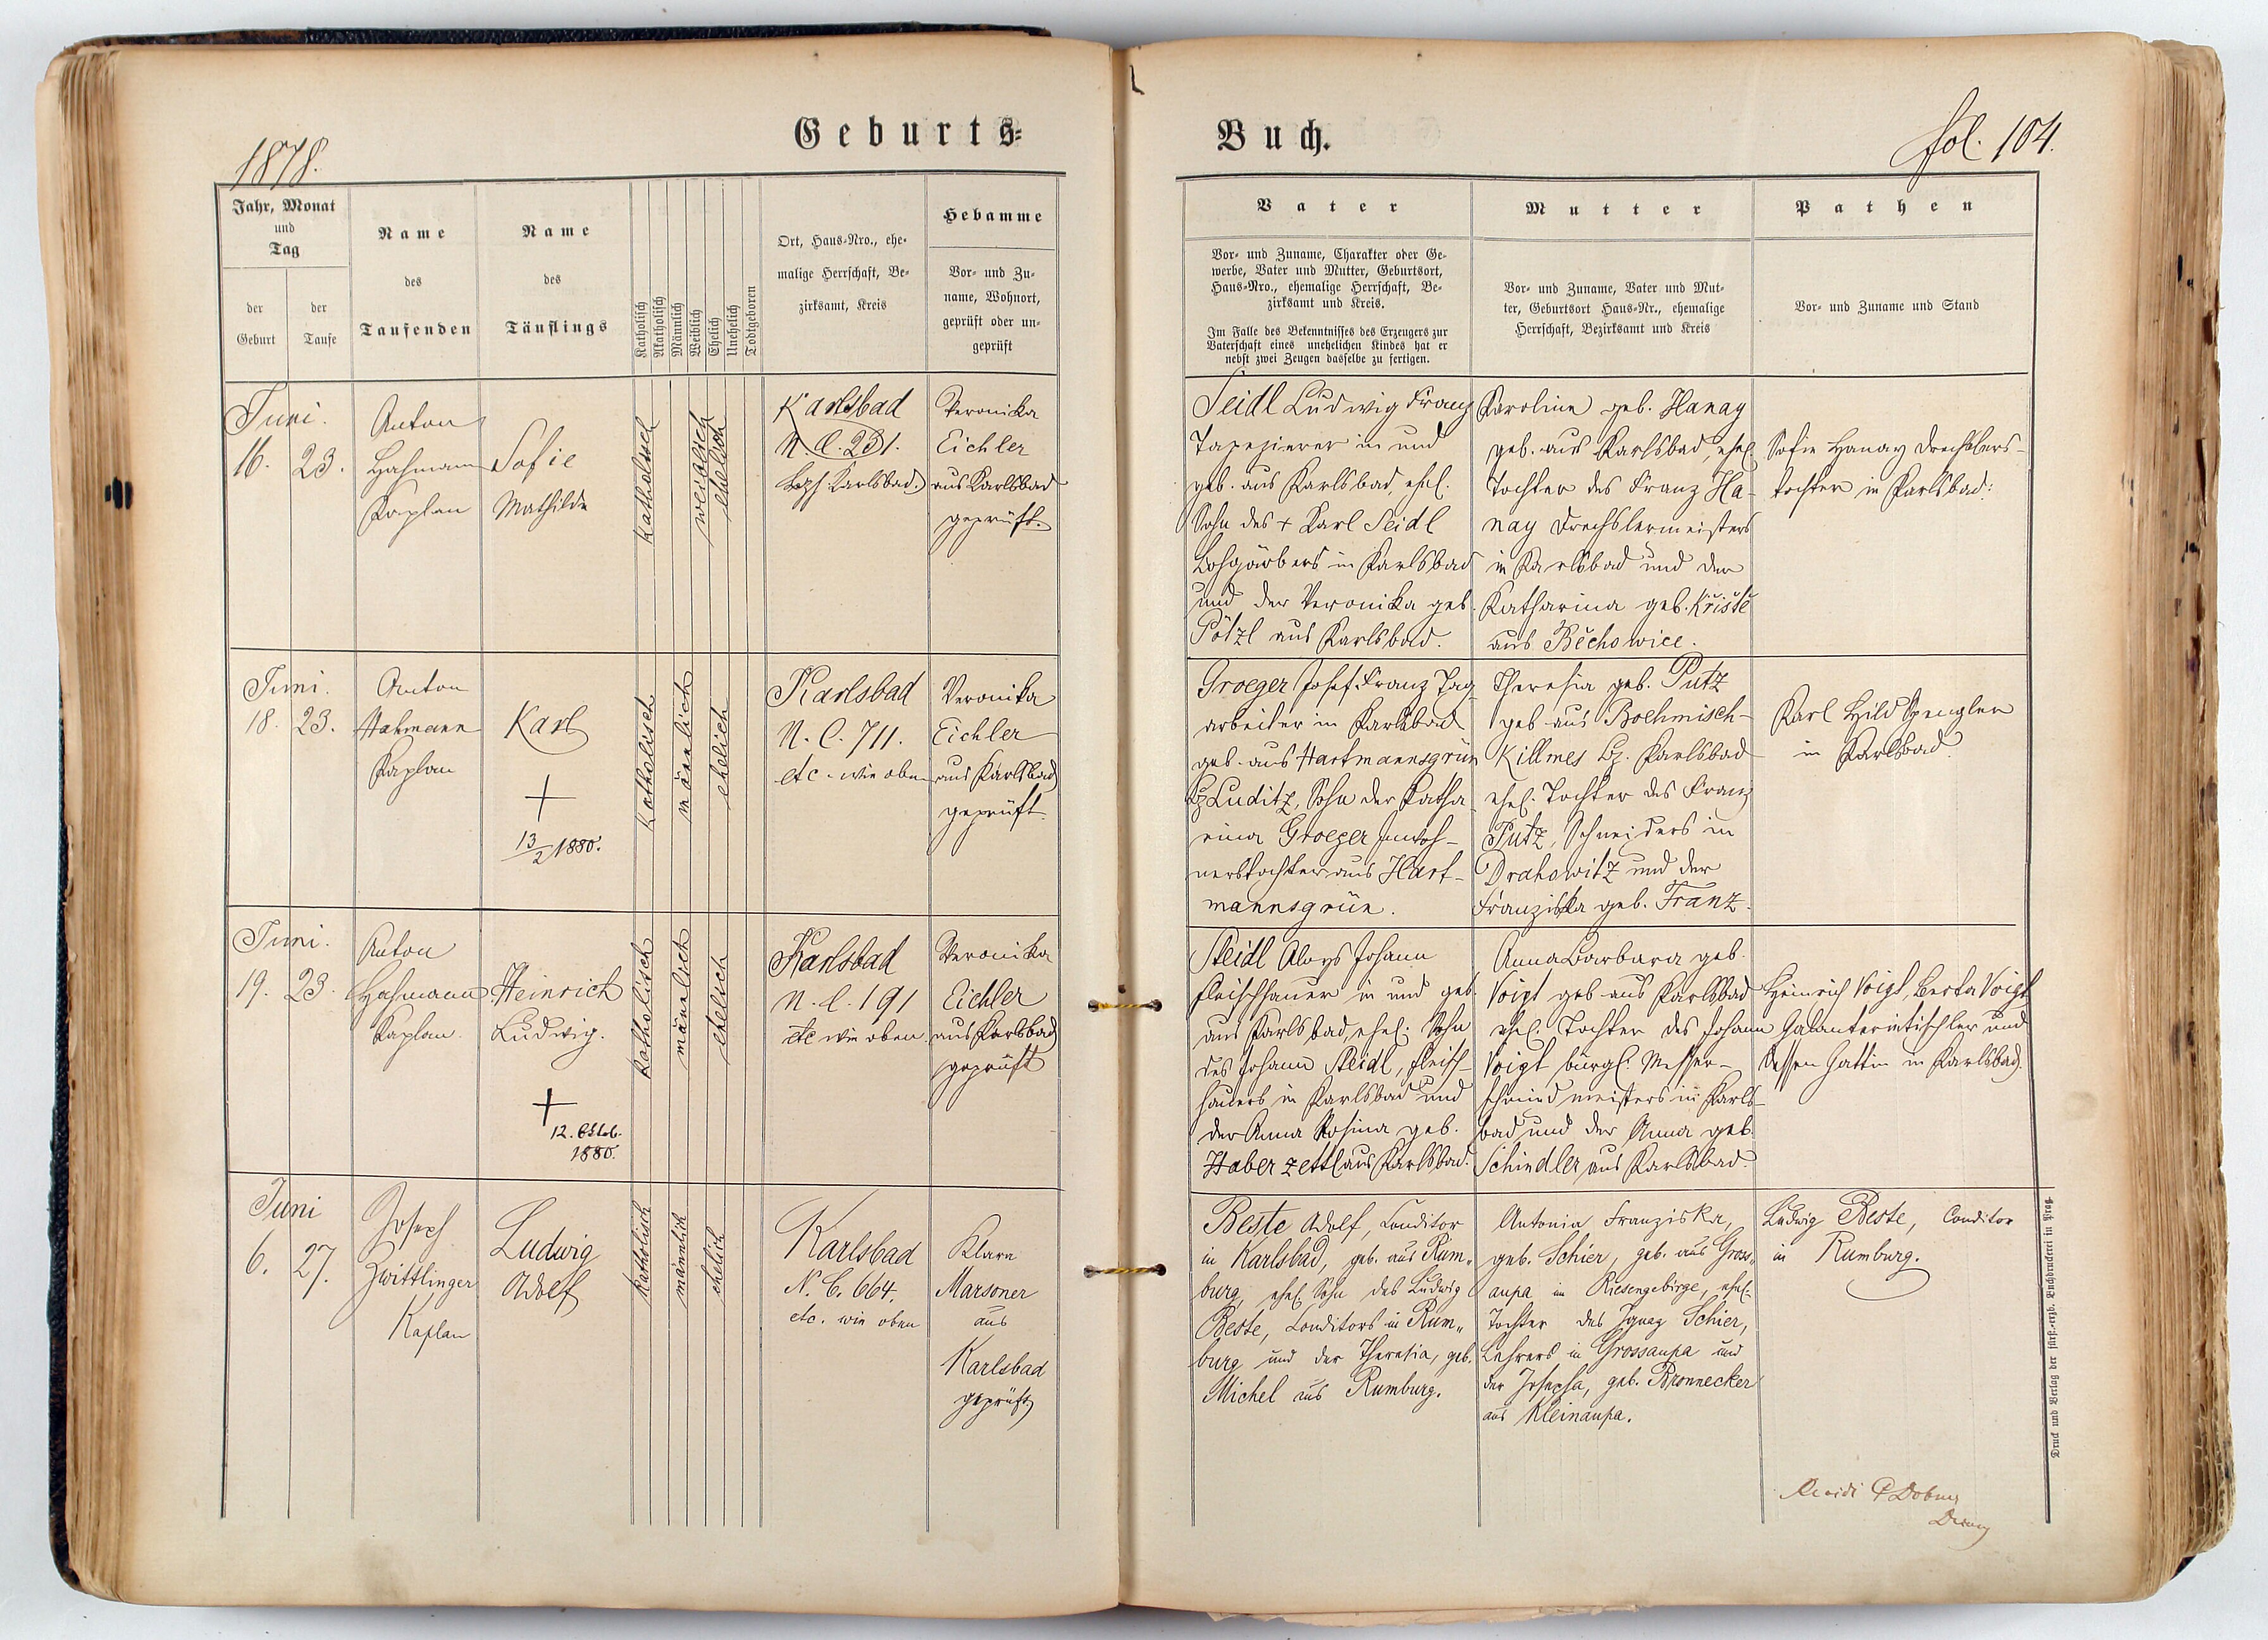 Geburts-
Buch.
1878.
fol. 104.
Jahr, Monat
und
Tag
der
Geburt
der
Taufe
Name
des
Taufenden
Name
des
Täuflings
Katholisch
Akatholisch
Männlich
Weiblich
Ehelich
Unehelich
Todtgeboren
Ort, Haus-Nro., ehe-
malige Herrschaft, Be-
zirksamt, Kreis
Hebamme
Vor- und Zu-
name, Wohnort,
geprüft oder un-
geprüft
Vater
Vor- und Zuname, Charakter oder Ge-
werbe, Vater und Mutter, Geburtsort,
Haus-Nro., ehemalige Herrschaft, Be-
zirksamt und Kreis.
Im Falle des Bekenntnisses des Erzeugers zur
Vaterschaft eines unehelichen Kindes hat er
nebst zwei Zeugen dasselbe zu fertigen.
Mutter
Vor- und Zuname, Vater und Mut-
ter, Geburtsort Haus-Nr., ehemalige
Herrschaft, Bezirksamt und Kreis
Pathen
Vor- und Zuname und Stand
Juni.
16. 23.
Anton
Hahmann
Kaplan
Sofie
Mathilde
katholisch
weiblich
ehelich
Karlsbad
N. C. 231.
Bezh. Karlsbad.
Veronika
Eichler
aus Karlsbad
geprüft.
Seidl Ludwig Franz
Tapezierer in und
geb. aus Karlsbad, ehel.
Sohn des + Karl Seidl
Lohgärbers in Karlsbad
und der Veronika geb.
Pötzl aus Karlsbad.
Karoline geb. Hanay
geb. aus Karlsbad, ehel.
Tochter des Franz Ha-
nay Drechslermeisters
in Karlsbad und der
Katharina geb. Křiště
aus Běchowice.
Sofie Hanay Drechslers-
tochter in Karlsbad.
Juni.
18. 23.
Anton
Hahmann
Kaplan
Karl
+
13/2 1880.
katholisch
männlich
ehelich
Karlsbad
N. C. 711.
etc. wie oben
Veronika
Eichler
aus Karlsbad
geprüft.
Groeger Josef Franz Tag-
arbeiter in Karlsbad
geb. aus Hartmannsgrün
Bz Luditz, Sohn der Katha-
rina Groeger Inwoh-
nerstochter aus Hart-
mannsgrün.
Theresia geb. Putz
geb. aus Boehmisch-
Killmes Bz. Karlsbad
ehel. Tochter des Franz
Putz, Schneiders in
Drahowitz und der
Franziska geb. Franz.
Karl Hild Spengler
in Karlsbad.
Juni.
19. 23.
Anton
Hahmann
Kaplan.
Heinrich
Ludwig.
+
12. Oktob.
1880.
katholisch
männlich
ehelich
Karlsbad
N. C. 191
etc wie oben.
Veronika
Eichler
aus Karlsbad
geprüft
Steidl Aloys Johann
Fleischhauer in und geb.
aus Karlsbad, ehel. Sohn
des Johann Steidl, Fleisch-
hauers in Karlsbad und
der Anna Rosina geb.
Haberzettl aus Karlsbad.
Anna Barbara geb.
Voigt geb. aus Karlsbad
ehel. Tochter des Johann
Voigt bürgl. Messer-
schmiedmeisters in Karls-
bad und der Anna geb.
Schindler aus Karlsbad.
Heinrich Voigt, Berta Voigt
Galanterietischler und
dessen Gattin in Karlsbad.
Juni
6. 27.
Joseph
Zwittlinger
Kaplan
Ludwig
Adolf
katholisch
männlich
ehelich
Karlsbad
N. C. 664.
etc. wie oben
Klara
Marsoner
aus
Karlsbad
geprüft
Beste Adolf, Conditor
in Karlsbad, geb. aus Rum-
burg, ehel. Sohn des Ludwig
Beste, Conditors in Rum-
burg und der Theresia, geb.
Michel aus Rumburg.
Antonia Franziska,
geb. Schier, geb. aus Gross-
aupa im Riesengebirge, ehel.
Tochter des Ignaz Schier,
Lehrers in Grossaupa und
der Josepha, geb. Bronnecker
aus Kleinaupa.
Ludwig Beste, Conditor
in Rumburg.
Druck und Verlag der fürst.-erzb. Buchdruckerei in Prag.